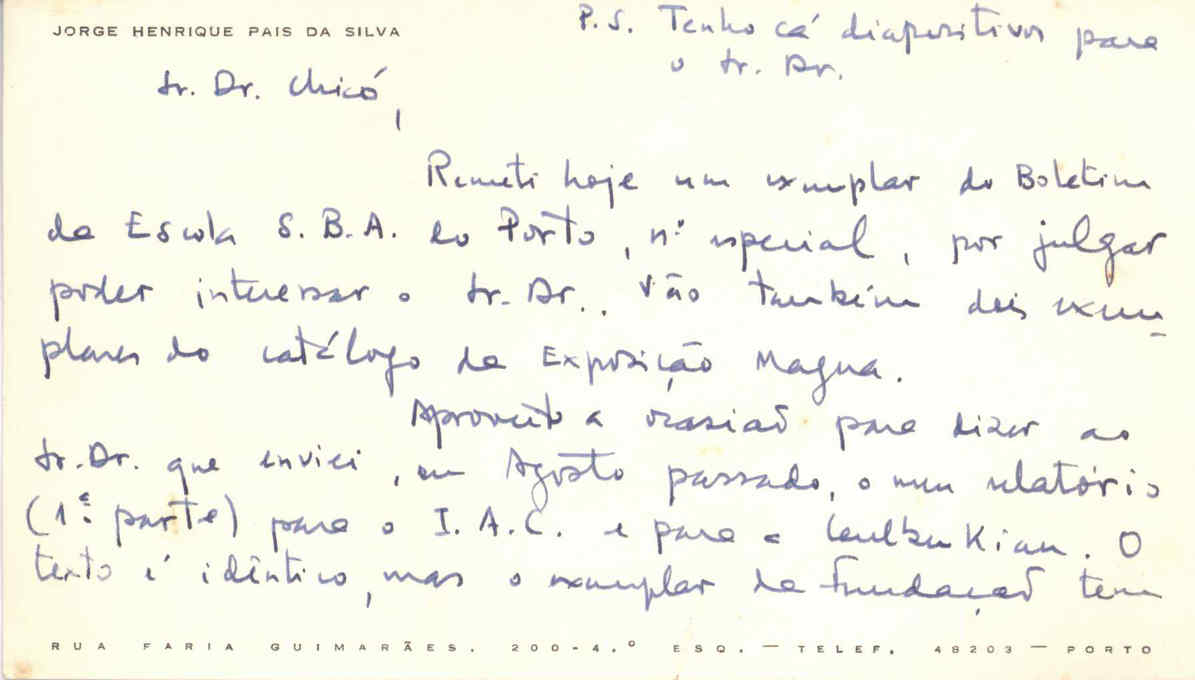 JORGE HENRIQUE PAIS DA SILVA
P.S. Tenho cá diapositivos para
o Sr. Dr.
Sr. Dr. Chicó,
Remeti hoje um exemplar do Boletim
da Escola S.B.A. do Porto, nº especial, por julgar
poder interessar o Sr. Dr.. Vão também dois exem-
plares do catálogo da Exposição Magna.
Aproveito a ocasião para dizer ao
Sr. Dr. que enviei, em Agosto passado, o meu relatório
(1ª parte) para o I.A.C. e para a Gulbenkian. O
texto é idêntico, mas o exemplar da Fundação tem
RUA FARIA GUIMARÃES, 200-4.º ESQ. — TELEF. 48203 — PORTO